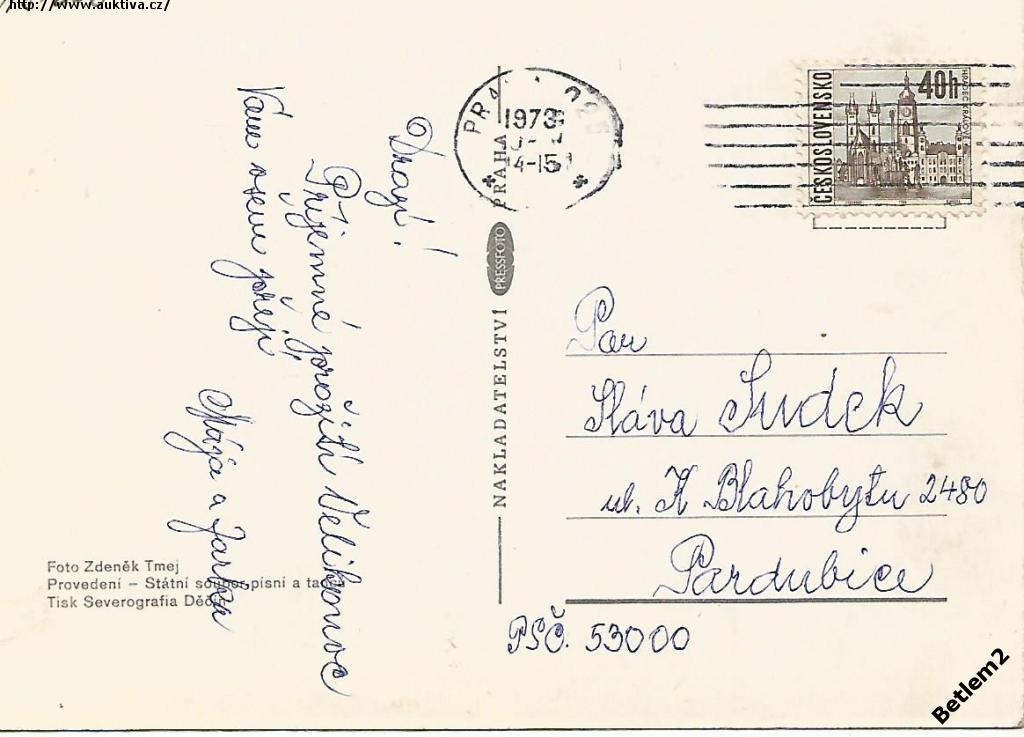 http://www.auktiva.cz/
Drazí!
Příjemné prožití Velikonoc
Vám všem přejí
Mája a Jarka
Foto Zdeněk Tmej
Provedení – Státní soubor písní a tanců
Tisk Severografia Děčín
NAKLADATELSTVÍ PRESSFOTO PRAHA
1973
4-15
ČESKOSLOVENSKO
40h
HRADEC KRÁLOVÉ
Pan
Sláva Sudek
ul. K Blahobytu 2480
Pardubice
PSČ. 53000
Betlem2